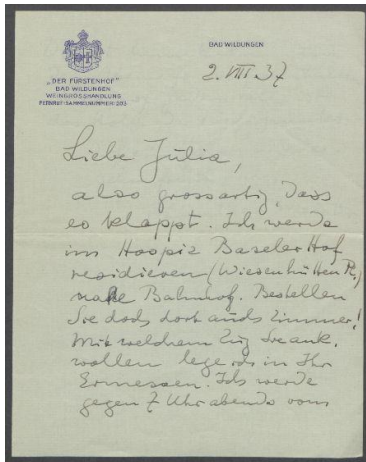 "DER FÜRSTENHOF"
BAD WILDUNGEN
WEINGROSSHANDLUNG
FERNRUF-SAMMELNUMMER 203
BAD WILDUNGEN
2. VIII. 37
Liebe Julia,
also grossartig, dass
es klappt. Ich werde
im Hospiz Baseler Hof
residieren (Wiesenhütten Pl.,
nahe Bahnhof. Bestellen
Sie doch dort auch Zimmer!
Mit welchem Zug Sie ank.
wollen lege ich in Ihr
Ermessen. Ich werde
gegen 7 Uhr abends vom